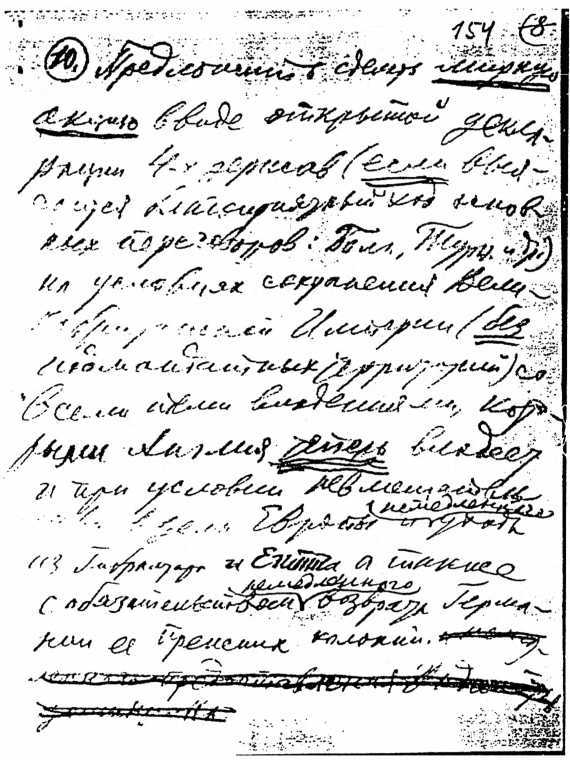 154 (8
10. Предложить сделать мирную
акцию в виде открытой декла-
рации 4-х держав (если выя-
вится благоприятный ход основ-
ных переговоров: Болг, Турц. и др.)
на условиях сохранения Вели-
кобританской Империи (без
подмандатных территорий) со
всеми теми владениями, кото-
рыми Англия теперь владеет
и при условии невмешательства
в дела Европы и немедленного ухода
из Гибралтара и Египта а также
с обязательством немедленного возврата Герма-
нии ее прежних колоний.